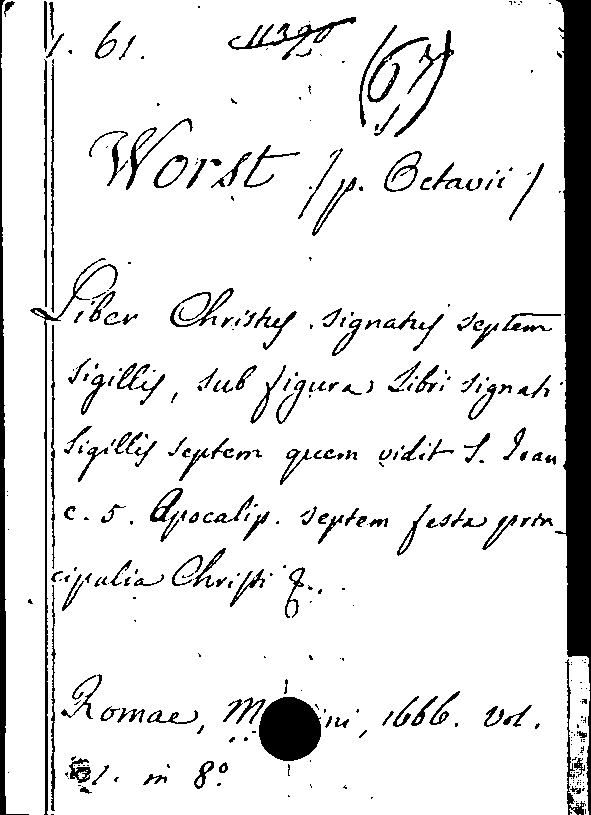 1. 61. 11390 (67)
Worst / p. Octavii /
Liber Christus signatus septem
Sigillis, sub figura Libri signati
Sigillis septem quem vidit S. Ioan.
c. 5. Apocalip. septem festa prin-
cipalia Christi &..
Romae, 1666. vol.
1. in 8º